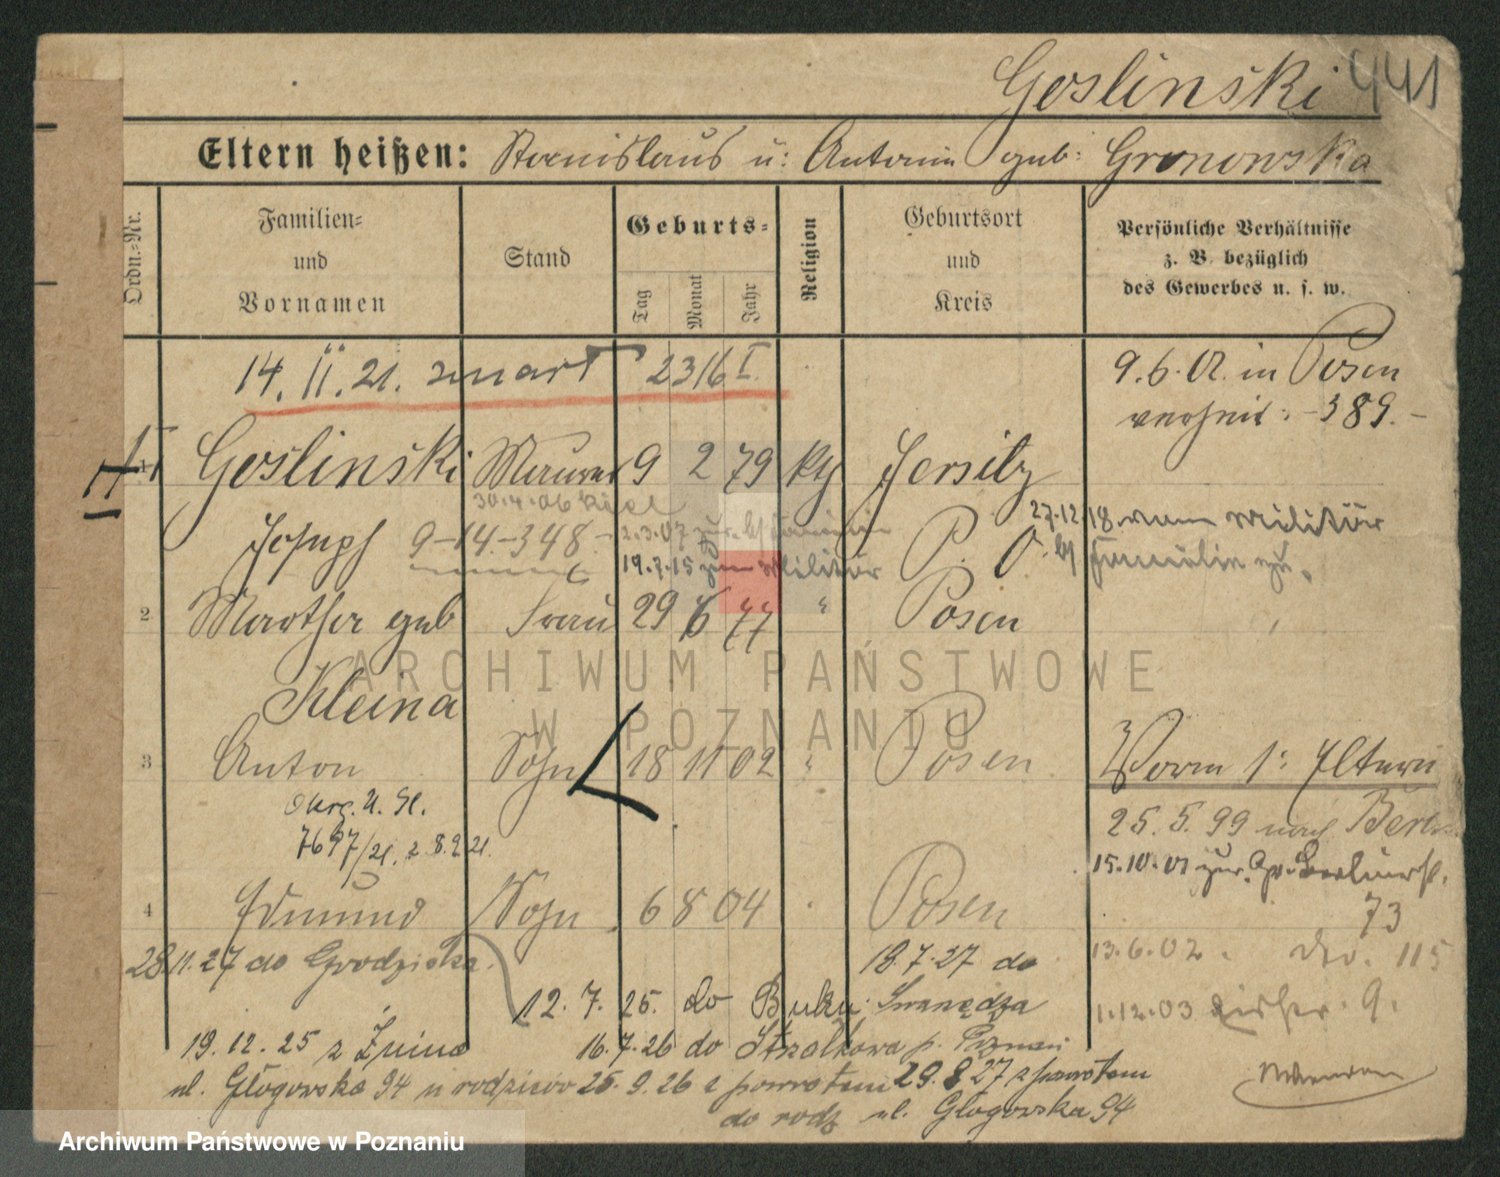 Goslinski 441
Eltern heißen: Stanislaus u: Antonin geb: Gronowska
Ordn.-Nr.
Familien-
und
Vornamen
Stand
Geburts-
Tag
Monat
Jahr
Religion
Geburtsort
und
Kreis
Persönliche Verhältnisse
z. B. bezüglich
des Gewerbes u. s. w.
14. II. 21. zmarł 2316 I.
9.6.02. in Posen
verheir: -389.-
1 Goslinski Maurer 9 2 79 kth Jersitz
30.4.06
Joseph 9-14-348- 2.3.07 zur.
27.12.18 vom Militär
19.7.15 zum Militär
P. O.
2 Marther geb Frau 29 6 77 " Posen
Kleina
ARCHIWUM PAŃSTWOWE
W POZNANIU
3 Anton Sohn 18 11 02 " Posen
Vorm 1: Eltern
Okrę. U. St.
25.5.99 nach Berlin
7697/21. z 8.2.21.
15.10.01 zur.
73
4 Edmund Sohn 6 8 04 Posen
28.11.27 do Grodziska.
18.7.27 do
13.6.02. 115
12.7.25. do Buku Swarzędza
1.12.03 9.
19.12.25 z Żnina 16.7.26 do Strzałkowa p.
ul. Głogowska 94 u rodziców 25.9.26 z powrotem 29.8 27 z powrotem
do rodz ul. Głogowska 94
Archiwum Państwowe w Poznaniu